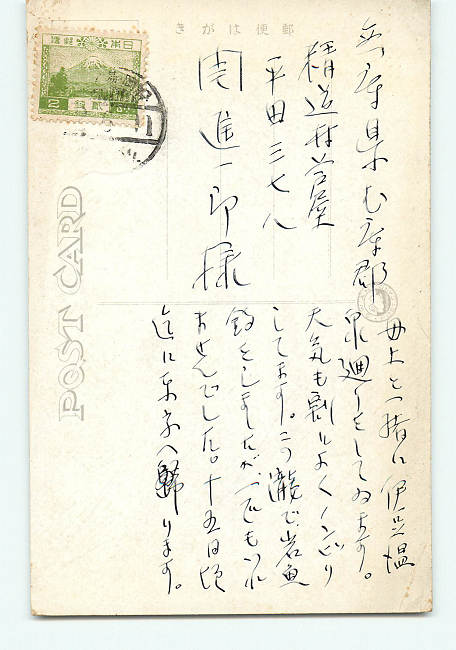 郵便はがき
日本郵便
2 弐銭
POST CARD
兵庫県むこ郡
精道村芦屋
平田三七八
関進一郎様
母上と一緒に伊豆温
泉廻りをしてゐます。
天気も割によくノンビリ
してます。この瀧で岩魚
釣をしましたが、一匹もつれ
ませんでした。十五日頃
迄に東京へ歸ります。